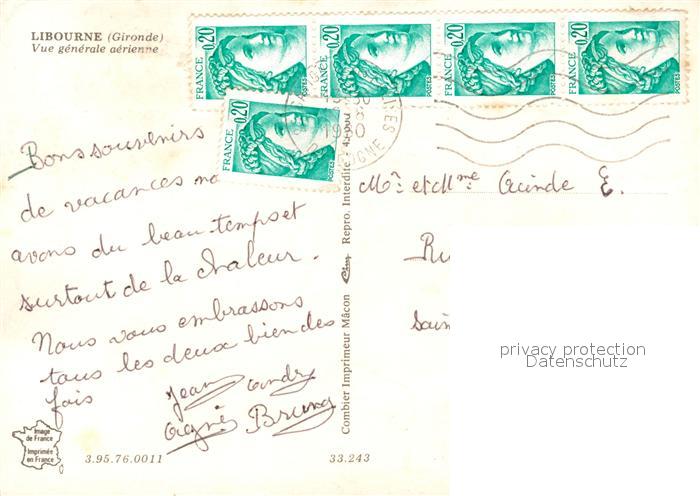 LIBOURNE (Gironde)
Vue générale aérienne
0,20 FRANCE POSTES
0,20 FRANCE POSTES
0,20 FRANCE POSTES
0,20 FRANCE POSTES
0,20 FRANCE POSTES
1980
DORDOGNE
Bons souvenirs
de vacances no
avons du beau temps et
surtout de la chaleur.
Nous vous embrassons
tous les deux bien des
fois
Jean André
Agnès Bruno
Mr et Mme E.
Ru
Sain
privacy protection
Datenschutz
Combier Imprimeur Mâcon Repro. Interdite
Image
de France
Imprimée
en France
3.95.76.0011
33.243